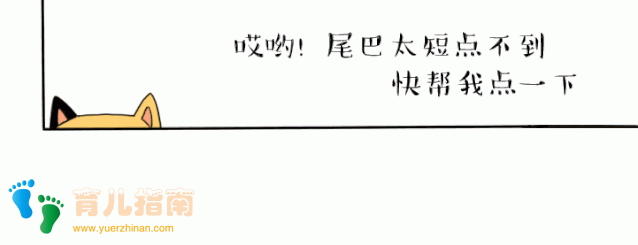 哎哟! 尾巴太短点不到
快帮我点一下
育儿指南
www.yuerzhinan.com